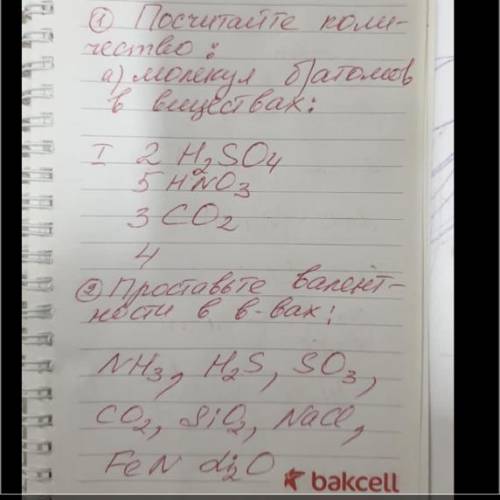 ① Посчитайте коли-
чество:
а) молекул б) атомов
в веществах:
I 2 H₂SO₄
5 HNO₃
3 CO₂
4
② Проставьте валент-
ности в в-вах:
NH₃, H₂S, SO₃,
CO₂, SiO₂, NaCl,
FeN Li₂O
bakcell